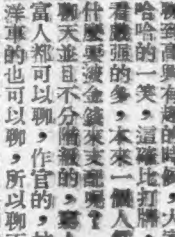 聊到高興有趣的時候，人
哈哈的一笑，這確比打牌
看戲强的多，本來一個人
什麽要被金錢來支配呢？
聊天並且不分階級的，窮人
富人都可以聊，作官的，
洋車的也可以聊，所以聊